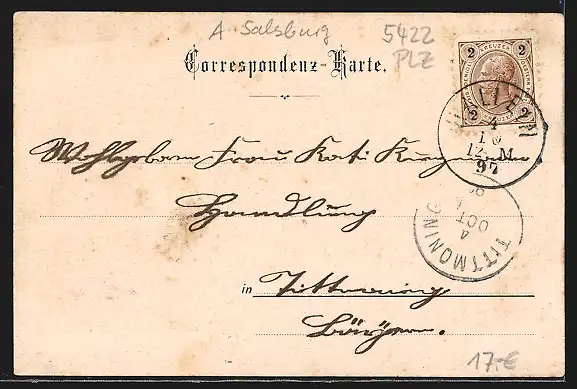 A Salsburg
5422
PLZ
Correspondenz-Karte.
2 KREUZER 2
2 2
HALLEIN
4
10
12 M
97
Wohlgeboren Frau Kati
Handlung
TITTMONING
4
OCT
in Tittmoning
Bayern.
17.-€